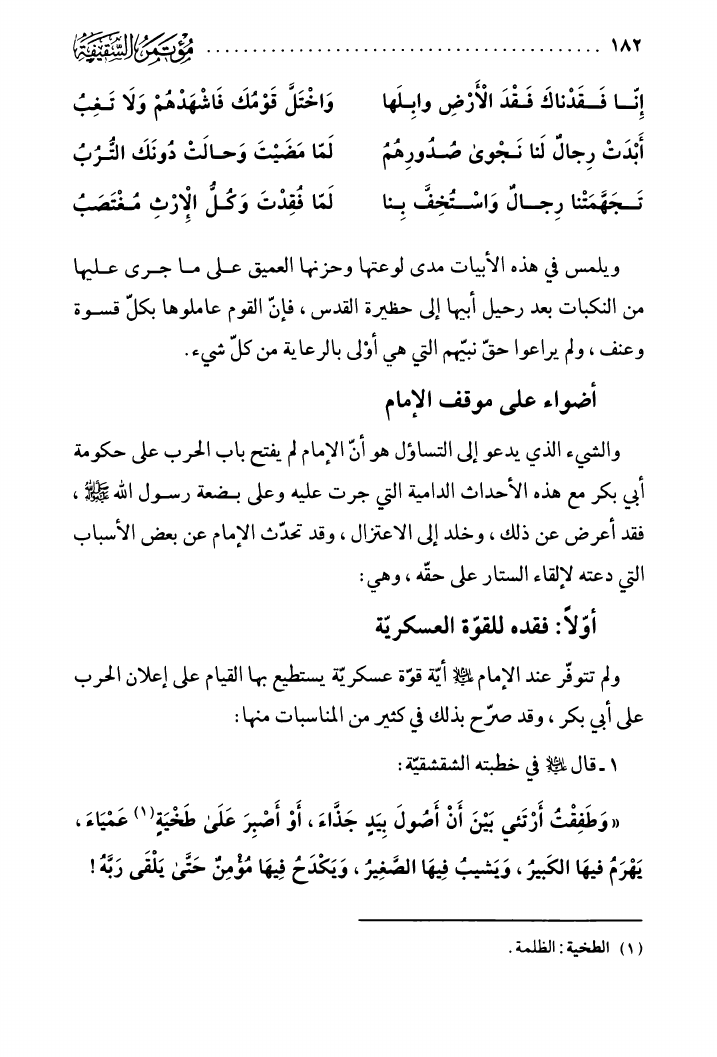 ١٨٢ ........................................ مؤتمر السّقيفة
إِنّــا فَــقَدْناكَ فَـقْدَ الْأَرْضِ وابِـلَها وَاخْتَلَّ قَوْمُكَ فَاشْهَدْهُمْ وَلَا تَـغِبُ
أَبْدَتْ رِجالٌ لَنا نَـجْوىٰ صُـدُورِهُمُ لَمّا مَضَيْتَ وَحـالَتْ دُونَكَ التُّـرُبُ
تَـجَهَّمَتْنا رِجـالٌ وَاسْـتُخِفَّ بِـنا لَمّا فُقِدْتَ وَكُـلُّ الْإِرْثِ مُـغْتَصَبُ
ويلمس في هذه الأبيات مدى لوعتها وحزنها العميق عـلـى مـا جـرى عـليها
من النكبات بعد رحيل أبيها إلى حظيرة القدس ، فإنّ القوم عاملوها بكلّ قسـوة
وعنف ، ولم يراعوا حقّ نبيّهم التي هي أوْلى بالرعاية من كلّ شيء.
أضواء على موقف الإمام
والشيء الذي يدعو إلى التساؤل هو أنّ الإمام لم يفتح باب الحرب على حكومة
أبي بكر مع هذه الأحداث الدامية التي جرت عليه وعلى بـضعة رسـول الله ﷺ ،
فقد أعرض عن ذلك ، وخلد إلى الاعتزال ، وقد تحدّث الإمام عن بعض الأسباب
التي دعته لإلقاء الستار على حقّه ، وهي:
أوّلاً: فقده للقوّة العسكريّة
ولم تتوفّر عند الإمام عليه السلام أيّة قوّة عسكريّة يستطيع بها القيام على إعلان الحرب
على أبي بكر ، وقد صرّح بذلك في كثير من المناسبات منها:
١ ـ قال عليه السلام في خطبته الشقشقيّة:
«وَطَفِقْتُ أَرْتَئي بَيْنَ أَنْ أَصُولَ بِيَدٍ جَذَّاءَ ، أَوْ أَصْبِرَ عَلَىٰ طَخْيَةٍ(١) عَمْيَاءَ ،
يَهْرَمُ فيهَا الكَبيرُ ، وَيَشيبُ فِيهَا الصَّغِيرُ ، وَيَكْدَحُ فِيهَا مُؤْمِنٌ حَتَّىٰ يَلْقَى رَبَّهُ !
(١) الطخية : الظلمة .